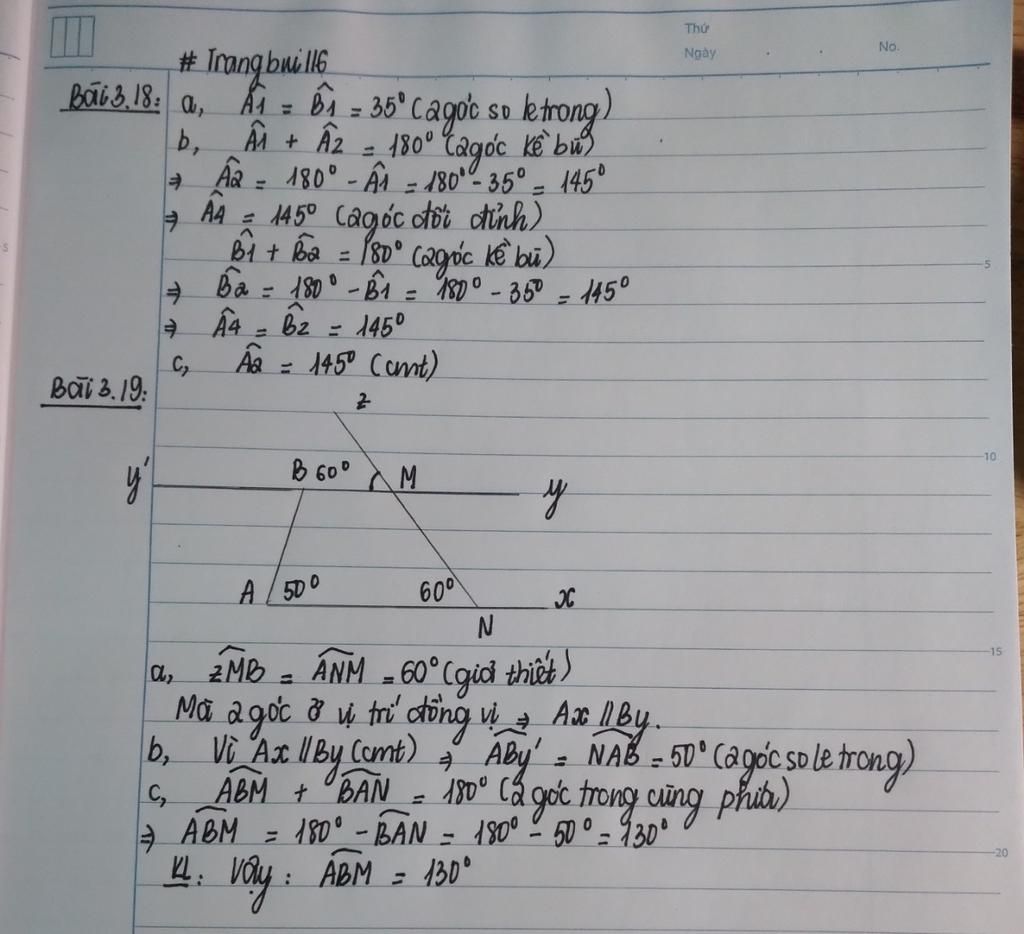 Thứ
Ngày . . No.
# Trangbui116
Bài 3.18: a, Â1 = B̂1 = 35° (2 góc so le trong)
b, Â1 + Â2 = 180° (2 góc kề bù)
⇒ Â2 = 180° - Â1 = 180° - 35° = 145°
⇒ Â4 = 145° (2 góc đối đỉnh)
B̂1 + B̂2 = 180° (2 góc kề bù)
⇒ B̂2 = 180° - B̂1 = 180° - 35° = 145°
⇒ Â4 = B̂2 = 145°
c, Â2 = 145° (cmt)
Bài 3.19:
z
y' B 60° M y
A 50° 60° x
N
a, zMB = ANM = 60° (giả thiết)
Mà 2 góc ở vị trí đồng vị ⇒ Ax // By.
b, Vì Ax // By (cmt) ⇒ ABy' = NAB = 50° (2 góc so le trong)
c, ABM + BAN = 180° (2 góc trong cùng phía)
⇒ ABM = 180° - BAN = 180° - 50° = 130°
Kl: Vậy: ABM = 130°
5
5
10
15
20